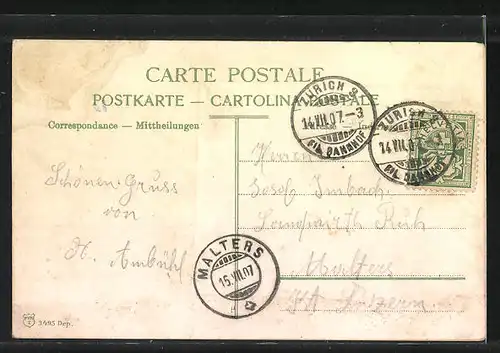 CARTE POSTALE
POSTKARTE – CARTOLINA POSTALE
Correspondance – Mittheilungen
Schönen Gruss
von
A. Ambühl
Herrn
Josef Imbach
Malters
Kt Luzern
ZÜRICH 3
14.VII.07–3
FIL. BAHNHOF
ZÜRICH 3
14.VII.07
FIL. BAHNHOF
MALTERS
15.VII.07
3495 Dep.